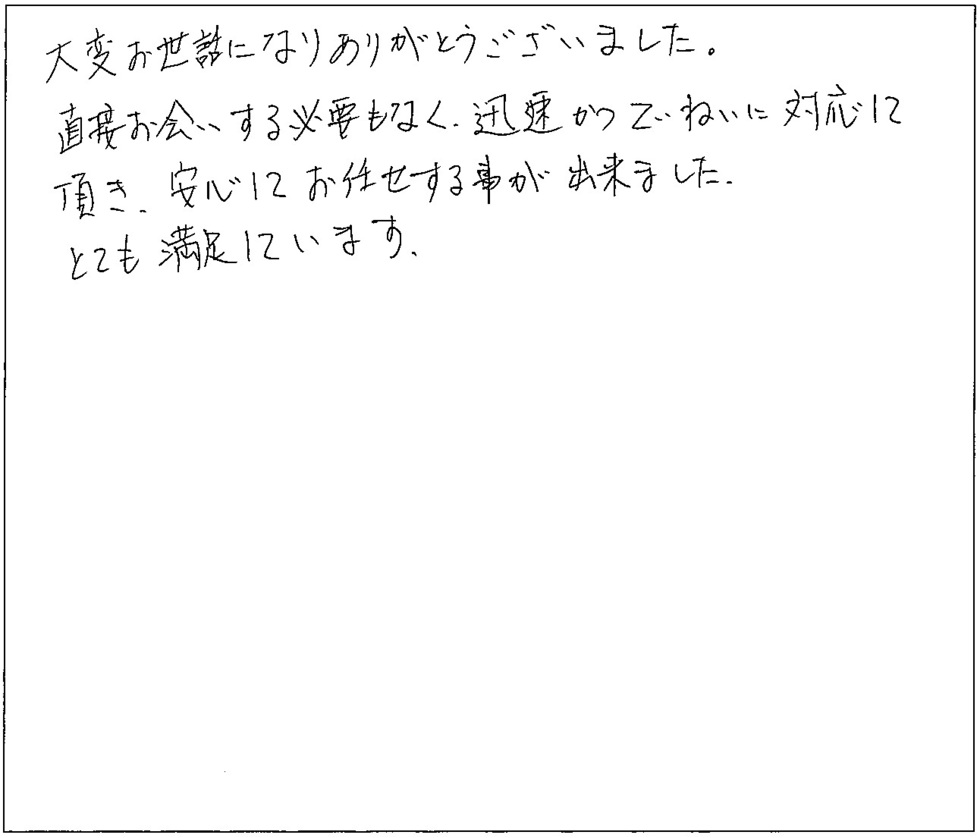 大変お世話になりありがとうございました。
直接お会いする必要もなく、迅速かつていねいに対応して
頂き、安心してお任せする事が出来ました。
とても満足しています。